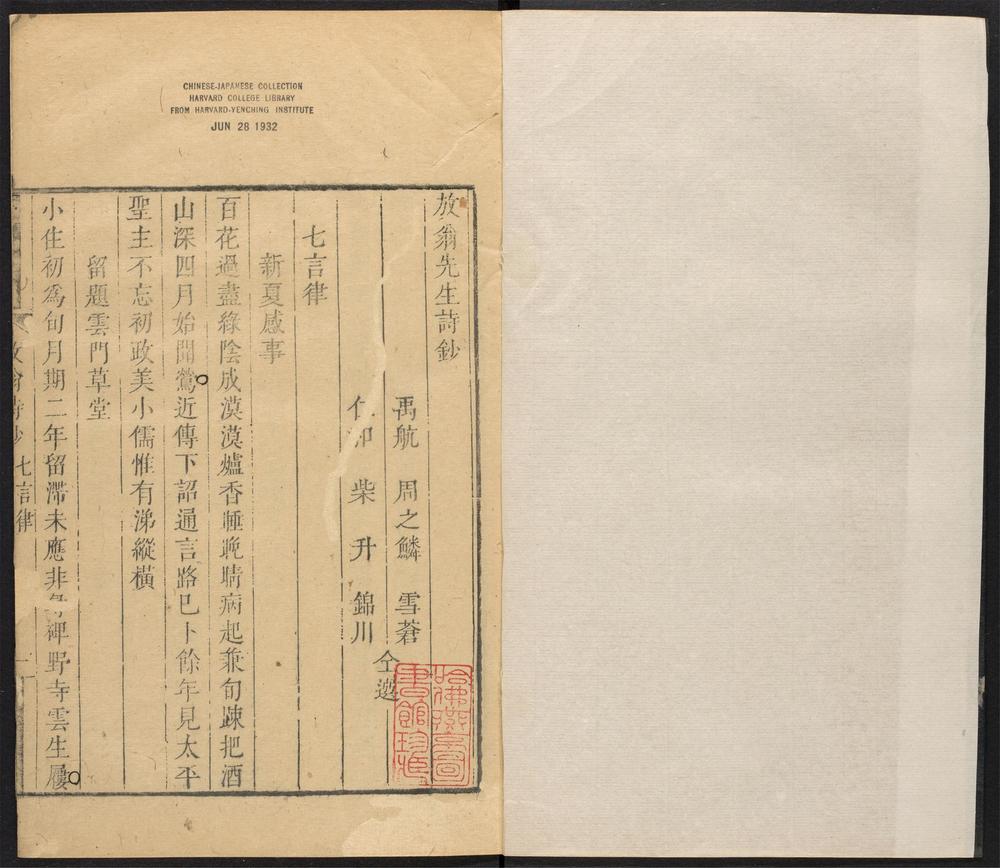 CHINESE-JAPANESE COLLECTION
HARVARD COLLEGE LIBRARY
FROM HARVARD-YENCHING INSTITUTE
JUN 28 1932
放翁先生詩鈔
禹航 周之鱗 雪蒼
柴升 錦川
仝選
七言律
新夏感事
百花過盡綠陰成漠漠爐香睡晚晴病起兼旬踈把酒
山深四月始聞鶯近傳下詔通言路已卜餘年見太平
聖主不忘初政美小儒惟有涕縱橫
留題雲門草堂
小住初爲旬月期二年留滯未應非
碑野寺雲生屨
七言律
哈佛燕京圖書館珍藏